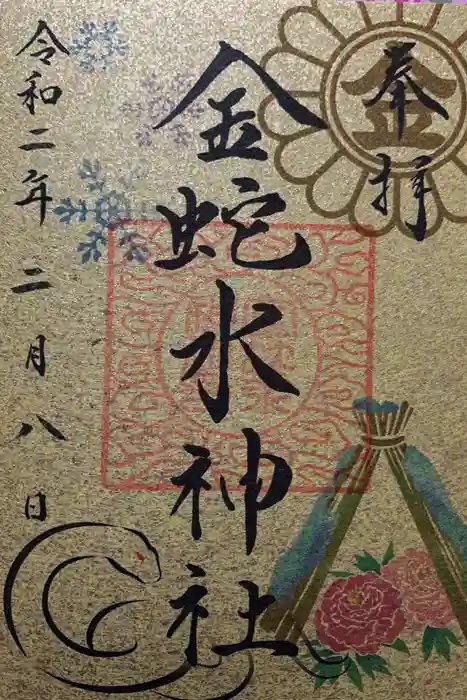 奉拝
金蛇水神社
令和二年二月八日
金